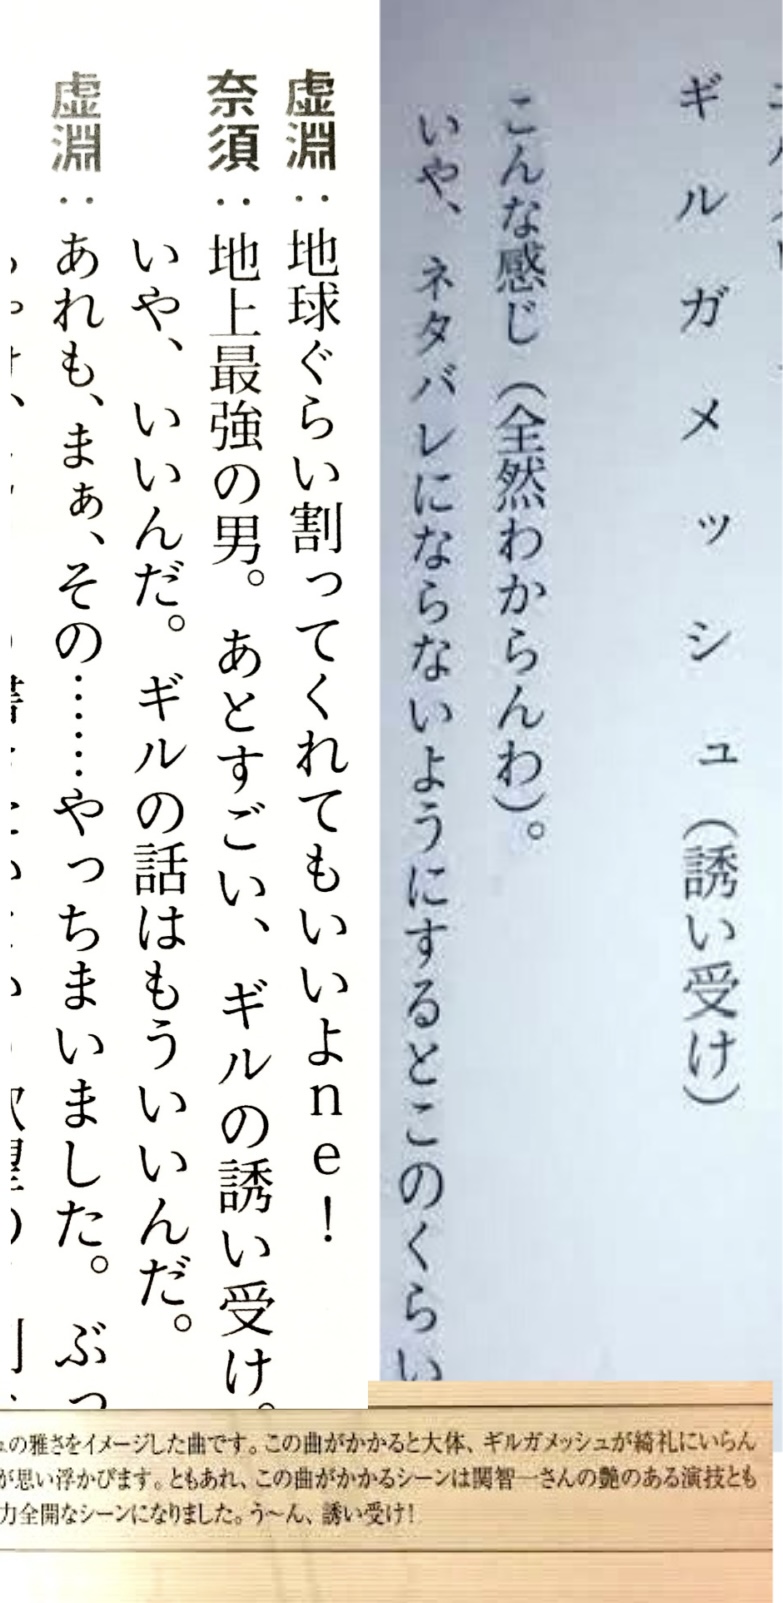 虚淵：地球ぐらい割ってくれてもいいよｎｅ！
奈須：地上最強の男。あとすごい、ギルの誘い受け。
いや、いいんだ。ギルの話はもういいんだ。
虚淵：あれも、まぁ、その……やっちまいました。ぶっ
ギルガメッシュ（誘い受け）
こんな感じ（全然わからんわ）。
いや、ネタバレにならないようにするとこのくらい
の雅さをイメージした曲です。この曲がかかると大体、ギルガメッシュが綺礼にいらん
が思い浮かびます。ともあれ、この曲がかかるシーンは関智一さんの艶のある演技とも
力全開なシーンになりました。う〜ん、誘い受け！